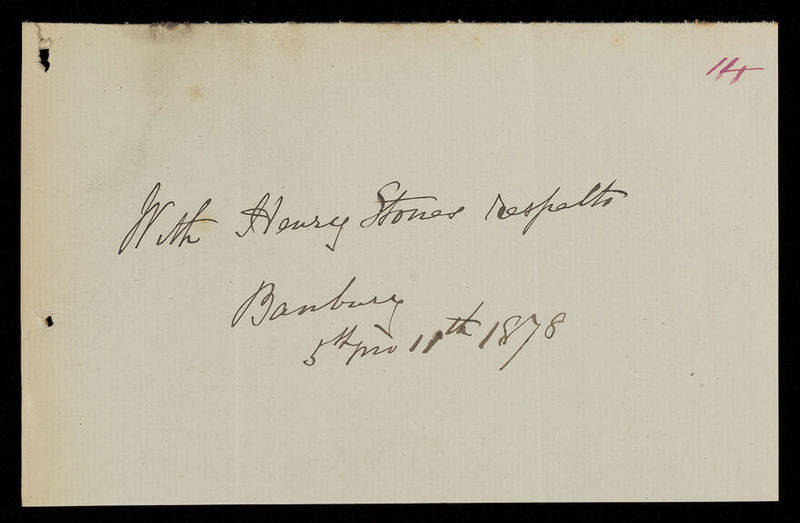 14
With Henry Stones respects
Banbury
5th mo 11th 1878